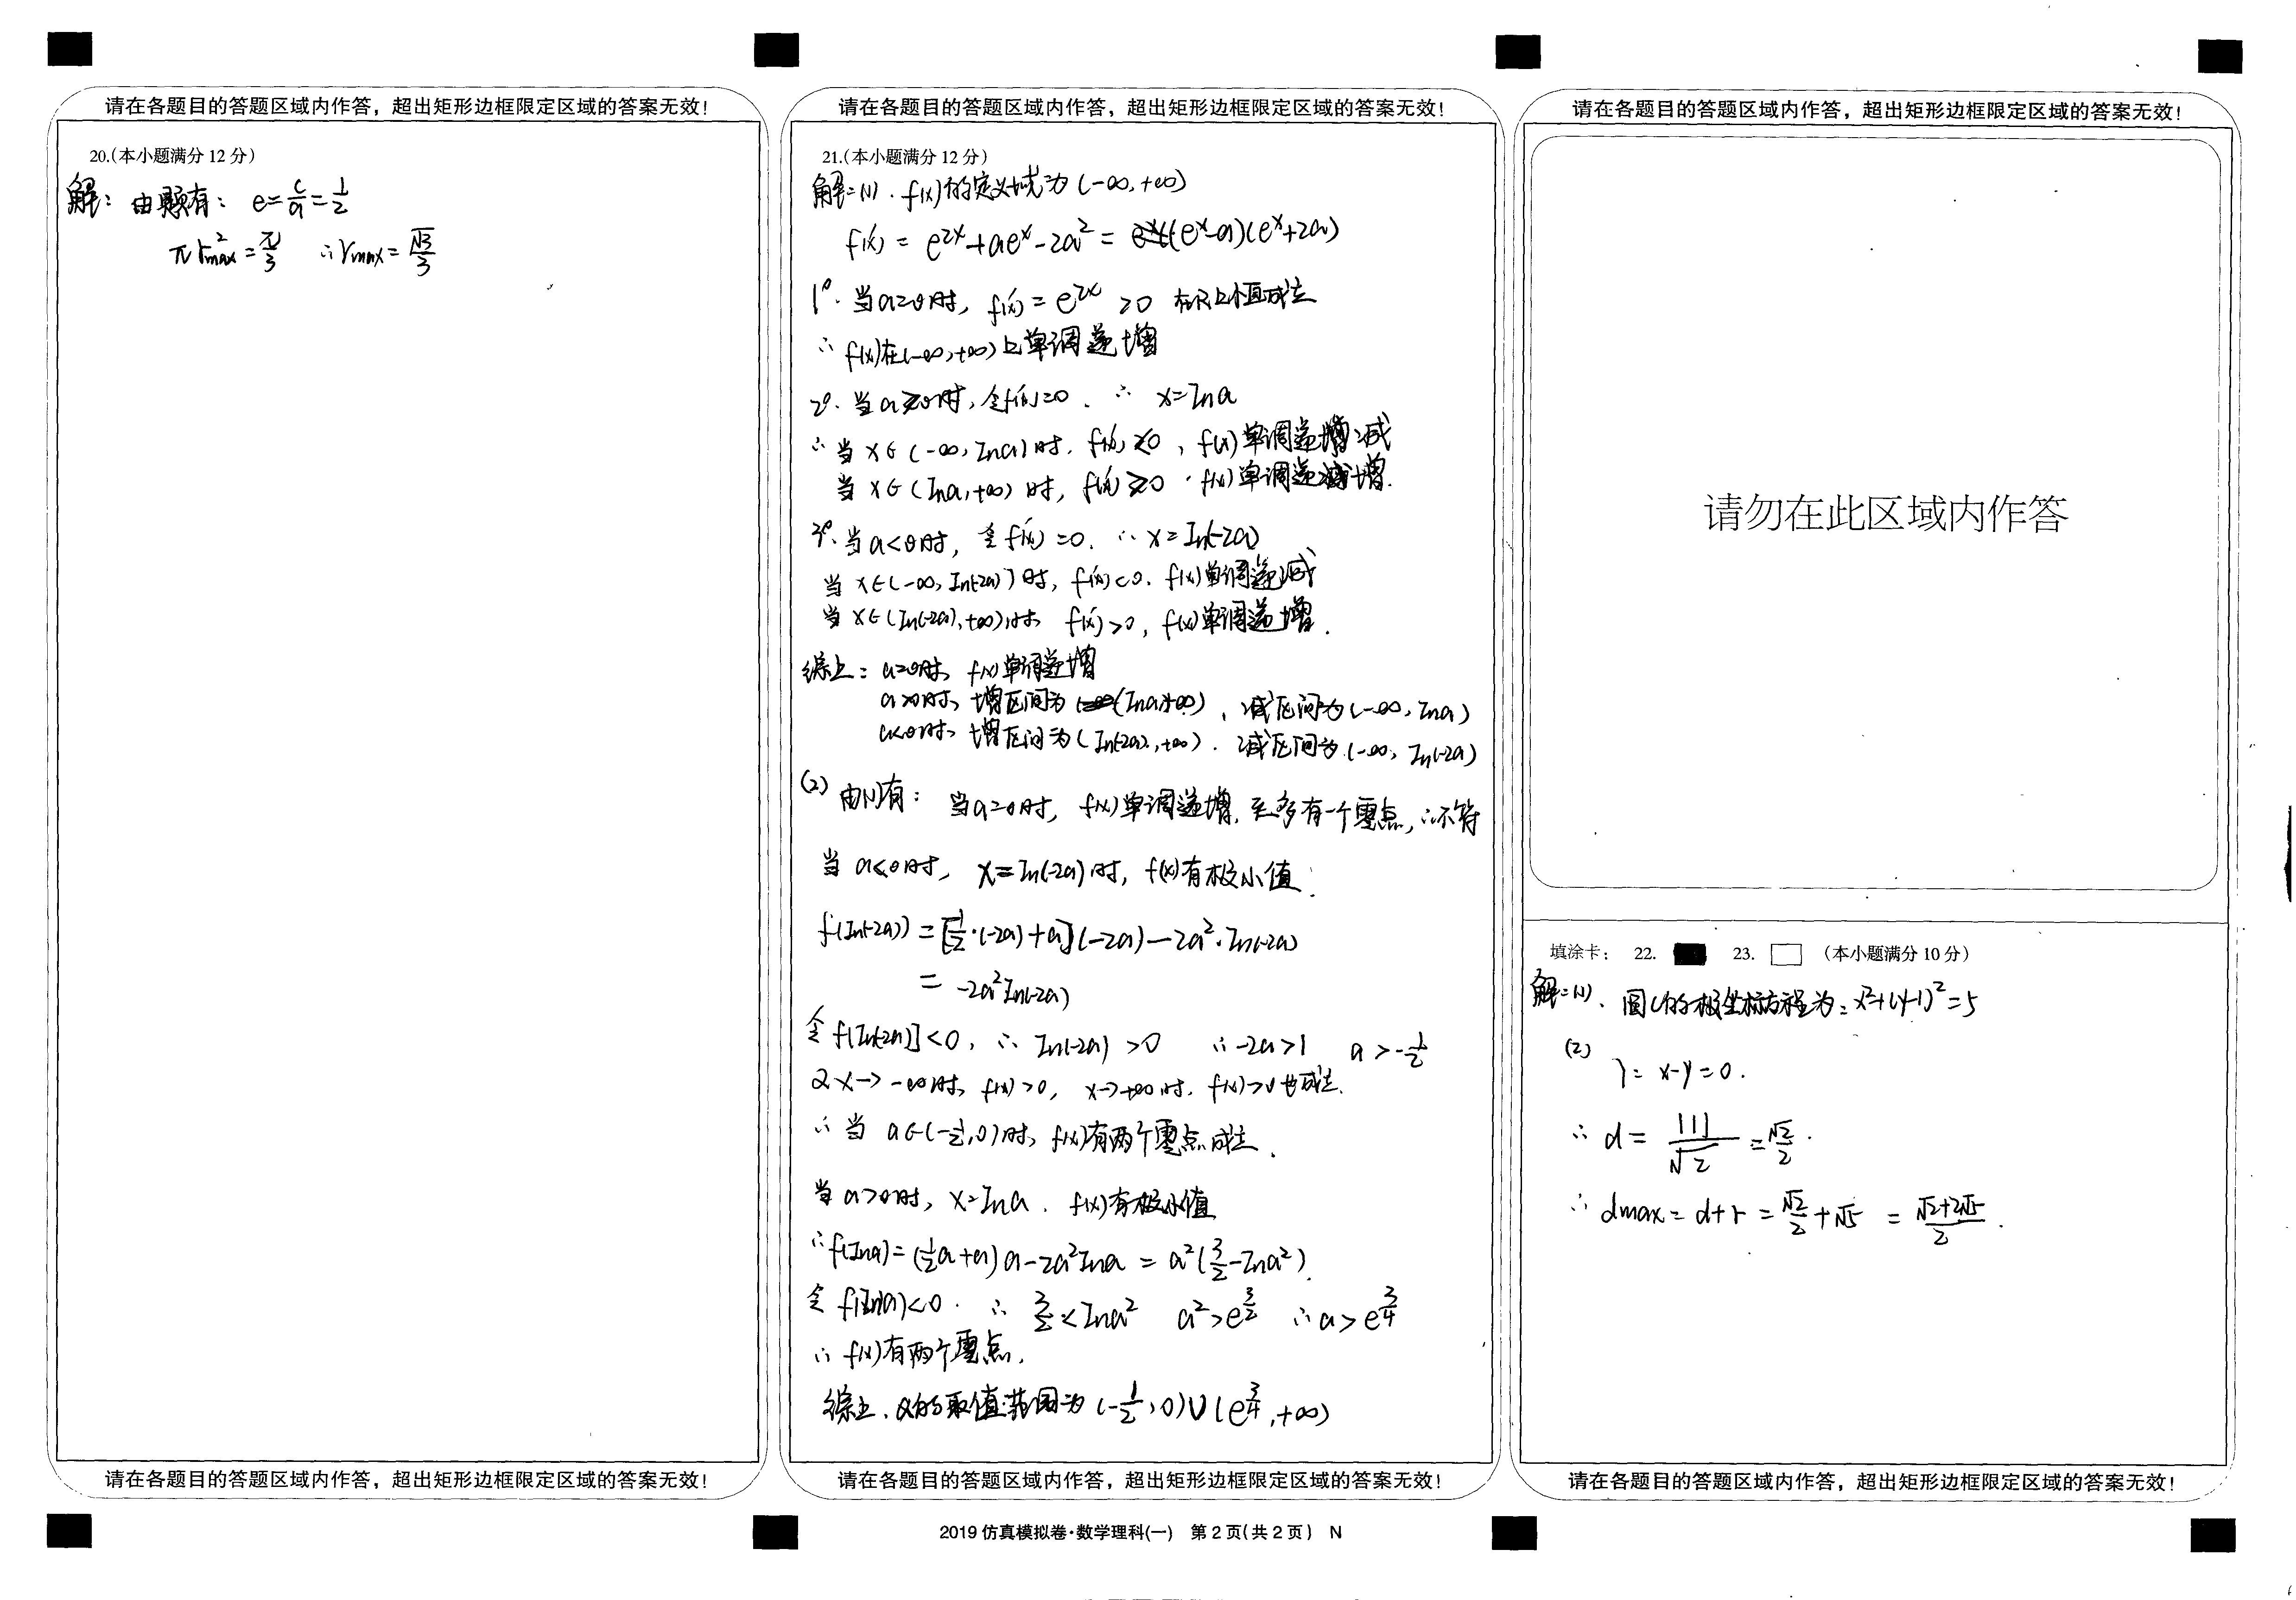 请在各题目的答题区域内作答，超出矩形边框限定区域的答案无效！
20.(本小题满分12分)
解：由题有：e=c/a=1/2
πr²max=π/3 ∴rmax=√3/3
请在各题目的答题区域内作答，超出矩形边框限定区域的答案无效！
请在各题目的答题区域内作答，超出矩形边框限定区域的答案无效！
21.(本小题满分12分)
解：(1). f(x)的定义域为(-∞,+∞)
f'(x)=e^{2x}+ae^x-2a²=(e^x-a)(e^x+2a)
1°. 当a=0时, f'(x)=e^{2x}>0 在R上恒成立
∴f(x)在(-∞,+∞)上单调递增
2°. 当a>0时,令f'(x)=0. ∴ x=lna
∴当x∈(-∞,lna)时, f'(x)<0, f(x)单调递减
当x∈(lna,+∞)时, f'(x)>0, f(x)单调递增.
3°. 当a<0时, 令f'(x)=0. ∴x=ln(-2a)
当x∈(-∞,ln(-2a))时, f'(x)<0. f(x)单调递减
当x∈(ln(-2a),+∞)时, f'(x)>0, f(x)单调递增.
综上：a=0时, f(x)单调递增
a>0时, 增区间为(lna,+∞), 减区间为(-∞,lna)
a<0时, 增区间为(ln(-2a),+∞). 减区间为(-∞, ln(-2a)
(2) 由(1)有: 当a=0时, f(x)单调递增,至多有一个零点,∴不符
当a<0时, x=ln(-2a)时, f(x)有极小值.
f(ln(-2a))=[1/2·(-2a)+a](-2a)-2a²·ln(-2a)
=-2a²ln(-2a)
令f[ln(-2a)]<0, ∴ ln(-2a)>0 ∴-2a>1 a>-1/2
又x→-∞时, f(x)>0, x→+∞时, f(x)>0也成立.
∴当a∈(-1/2,0)时, f(x)有两个零点成立.
当a>0时, x=lna. f(x)有极小值
∴f(lna)=(1/2a+a)a-2a²lna=a²(3/2-lna²).
令f(lna)<0. ∴ 3/2<lna² a²>e^{3/2} ∴a>e^{3/4}
∴f(x)有两个零点.
综上, a的取值范围为(-1/2,0)∪(e^{3/4},+∞)
请在各题目的答题区域内作答，超出矩形边框限定区域的答案无效！
请在各题目的答题区域内作答，超出矩形边框限定区域的答案无效！
请勿在此区域内作答
填涂卡： 22. 23. （本小题满分10分）
解：(1). 圆C的极坐标方程为: x²+(y-1)²=5
(2) l: x-y=0.
∴ d=|1|/√2=√2/2.
∴ dmax=d+r=√2/2+√5=(√2+2√5)/2.
请在各题目的答题区域内作答，超出矩形边框限定区域的答案无效！
2019仿真模拟卷·数学理科(一) 第2页(共2页) N